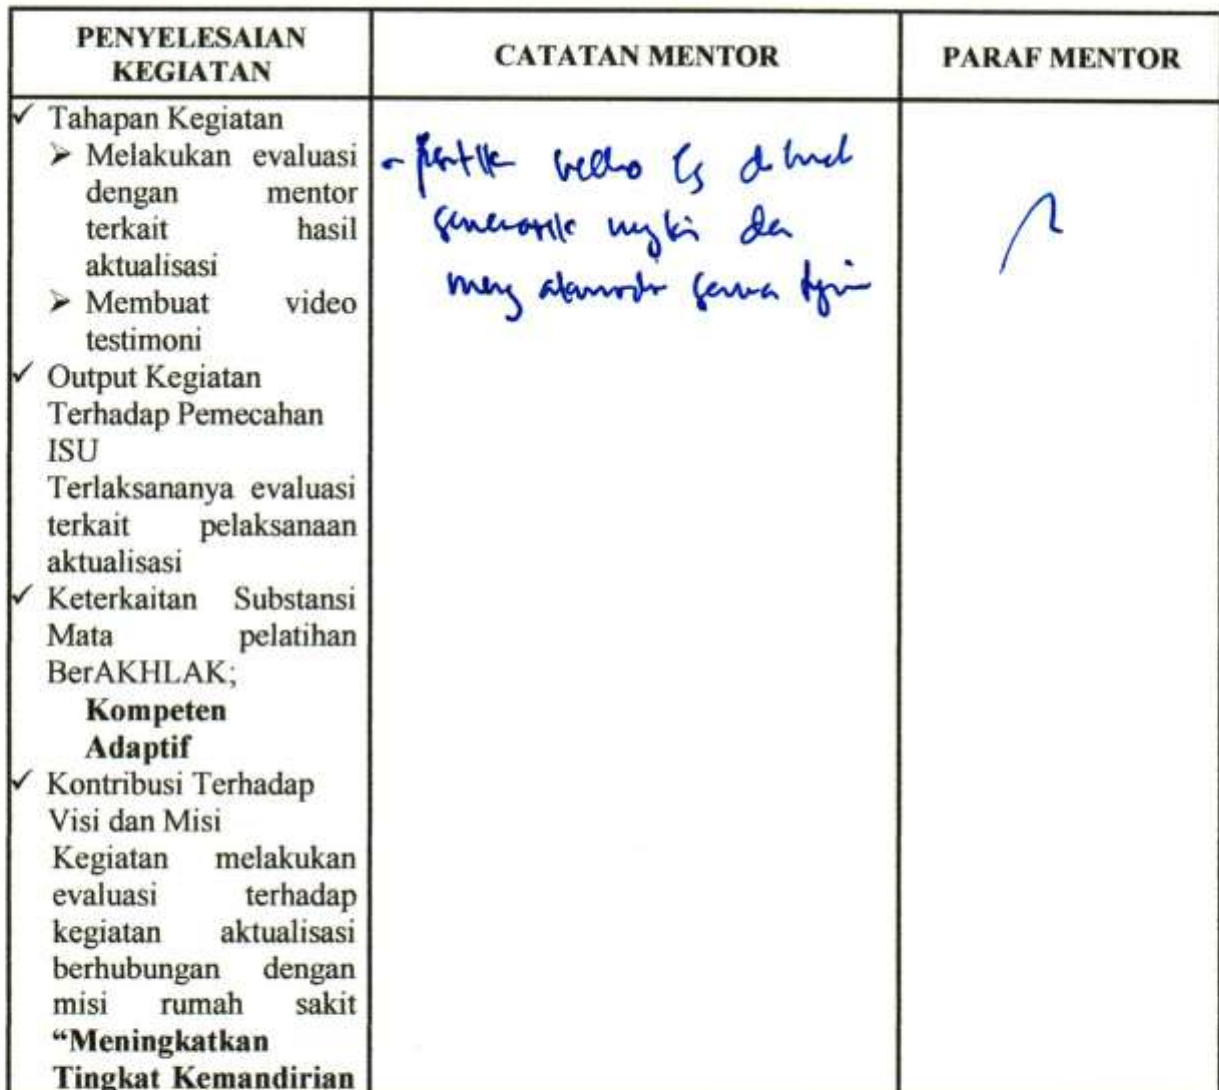 PENYELESAIAN
KEGIATAN
CATATAN MENTOR
PARAF MENTOR
✓ Tahapan Kegiatan
➤ Melakukan evaluasi
dengan mentor
terkait hasil
aktualisasi
➤ Membuat video
testimoni
✓ Output Kegiatan
Terhadap Pemecahan
ISU
Terlaksananya evaluasi
terkait pelaksanaan
aktualisasi
✓ Keterkaitan Substansi
Mata pelatihan
BerAKHLAK;
Kompeten
Adaptif
✓ Kontribusi Terhadap
Visi dan Misi
Kegiatan melakukan
evaluasi terhadap
kegiatan aktualisasi
berhubungan dengan
misi rumah sakit
“Meningkatkan
Tingkat Kemandirian